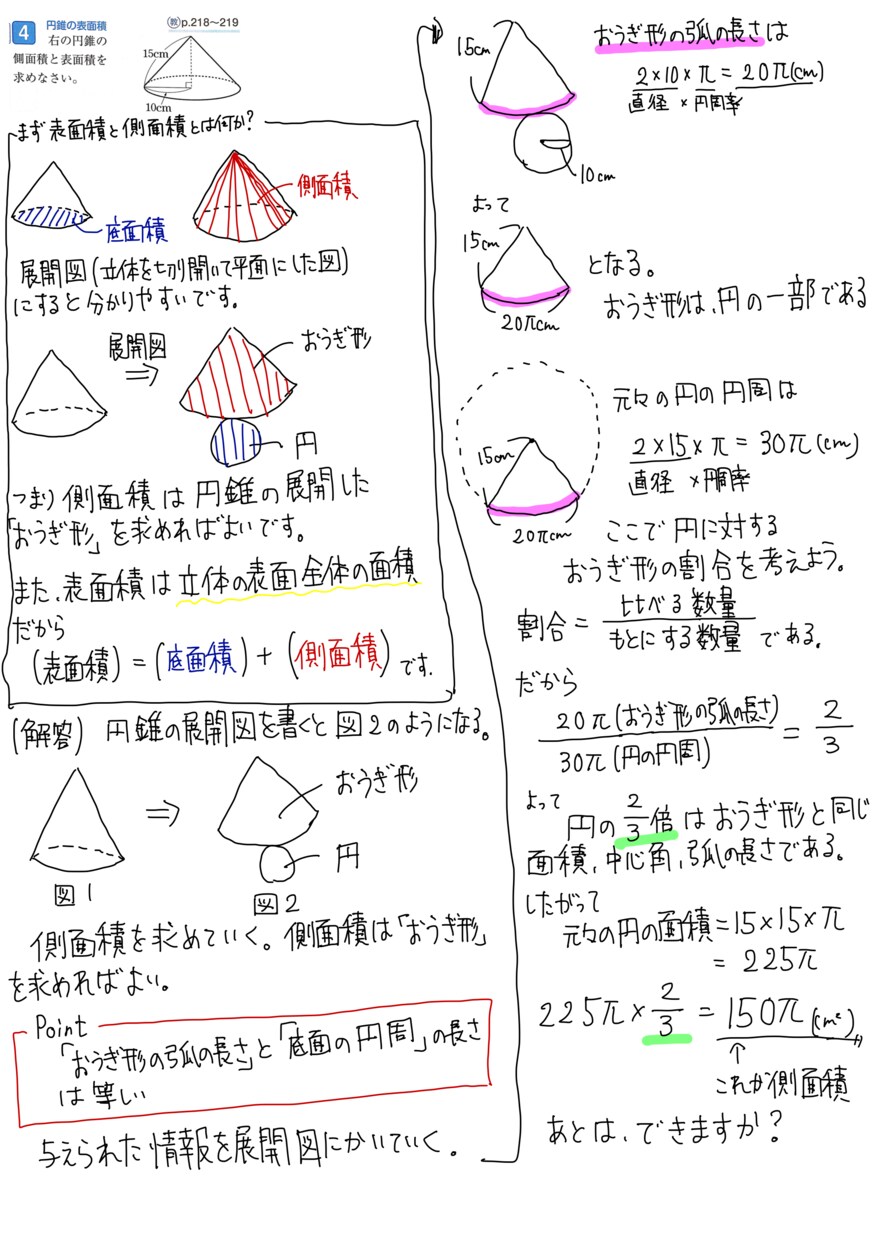 4 円錐の表面積
教p.218〜219
右の円錐の
側面積と表面積を
求めなさい。
15cm
10cm
まず表面積と側面積とは何か?
底面積
側面積
展開図(立体を切り開いて平面にした図)
にすると分かりやすいです。
展開図
⇒
おうぎ形
円
つまり側面積は円錐の展開した
「おうぎ形」を求めればよいです。
また、表面積は立体の表面全体の面積
だから
(表面積)=(底面積)+(側面積)です.
(解答) 円錐の展開図を書くと図2のようになる。
⇒
おうぎ形
円
図1
図2
側面積を求めていく。側面積は「おうぎ形」
を求めればよい。
Point
「おうぎ形の弧の長さ」と「底面の円周」の長さ
は等しい
与えられた情報を展開図にかいていく。
15cm
10cm
おうぎ形の弧の長さは
2×10×π=20π(cm)
直径×円周率
よって
15cm
20πcm
となる。
おうぎ形は、円の一部である
15cm
20πcm
元々の円の円周は
2×15×π=30π(cm)
直径×円周率
ここで円に対する
おうぎ形の割合を考えよう。
割合=比べる数量/もとにする数量 である。
だから
20π(おうぎ形の弧の長さ)/30π(円の円周) = 2/3
よって
円の2/3倍はおうぎ形と同じ
面積、中心角、弧の長さである。
したがって
元々の円の面積=15×15×π
=225π
225π×2/3=150π(cm²)
↑
これが側面積
あとは、できますか?